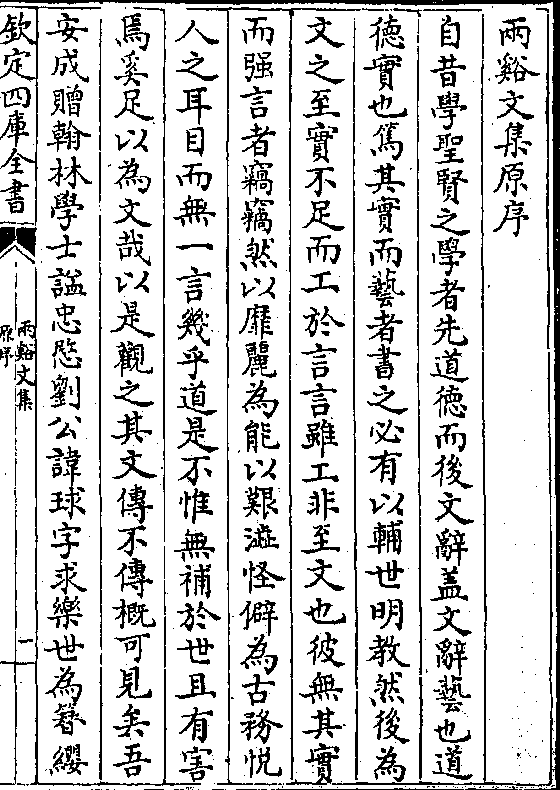 兩谿文集原序
自昔學聖賢之學者先道德而後文辭盖文辭藝也道
德實也篤其實而藝者書之必有以輔世明教然後為
文之至實不足而工於言言雖工非至文也彼無其實
而强言者竊竊然以靡麗為能以艱澁怪僻為古務悦
人之耳目而無一言幾乎道是不惟無補於世且有害
焉奚足以為文哉以是觀之其文傳不傳概可見矣吾
安成贈翰林學士諡忠愍劉公諱球字求樂世為簪纓
欽定四庫全書
兩谿文集
原序
一